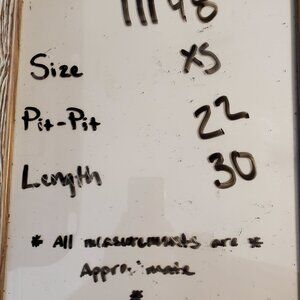 11148
Size XS
Pit-Pit 22
Length 30
* All measurements are *
Approximate
*